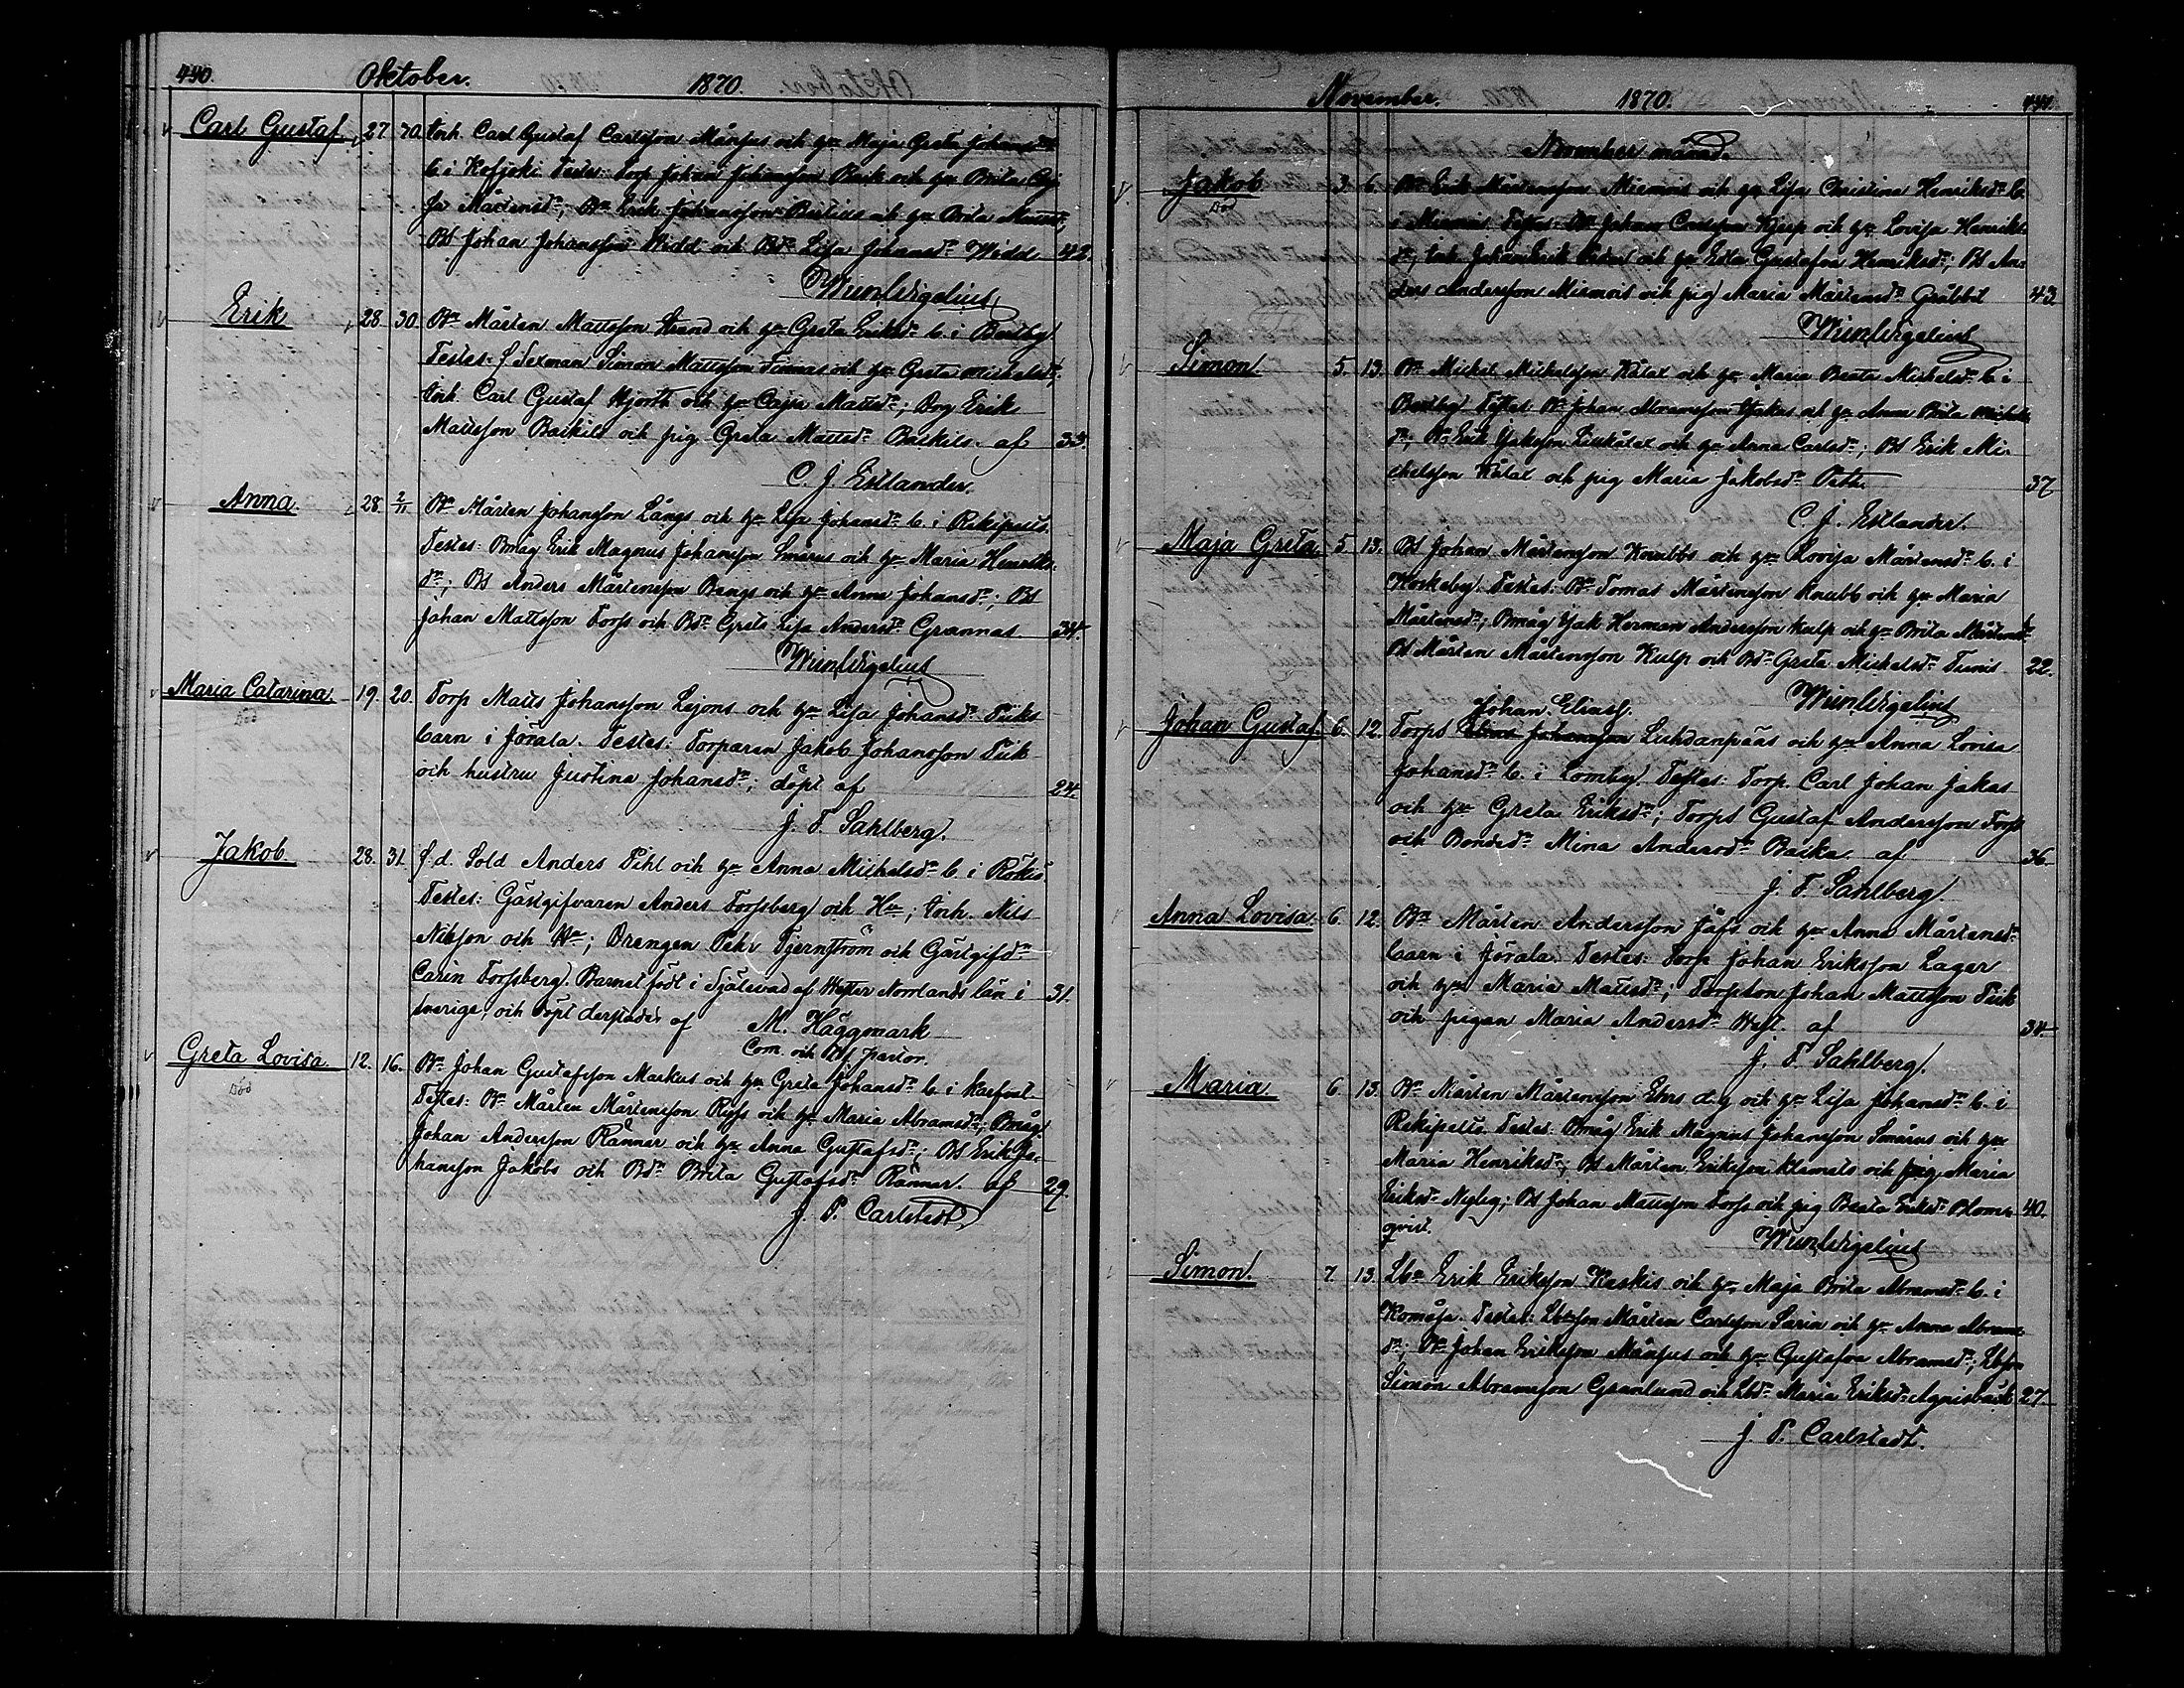 440. Oktober. 1870.
Carl Gustaf 27. 30. Inh. Carl Gustaf Carlsson Månsus och hu Maja Greta Johansdr
b. i Kefjoki Testes: Torp Johan Johansson Back och hu Brita Caj-
sa Mårtensdr; Bn Erik Johansson och hu Brita Mattsdr;
Bs Johan Johansson Widd och Bdr Lisa Johansdr Widd 42.
Erik 28 30. Bn Mårten Mattsson Strand och hu Greta Eriksdr b. i Bertby
Testes: f Sexman Simon Mattsson och hu Greta Mickelsdr;
Inh. Carl Gustaf Hjorth och hu Cajsa Mattsdr; Drg Erik
Mattsson Backils och pig Greta Mattsdr Backils. af 33.
C. J. Estlander.
Anna. 28. 2/11 Bn Mårten Johansson Långs och hu Lisa Johansdr b. i Rekipelts.
Testes: Bmåg Erik Magnus Johansson Smårus och hu Maria Henriks-
dr; Bs Anders Mårtensson Bengs och hu Anna Johansdr; Bs
Johan Mattsson Torss och Bdr Greta Lisa Andersdr Grannas 34.
Maria Catarina. 19. 20. Torp Matts Johansson Lejons och hu Lisa Johansdr Tuks
Död
barn i Jörala. Testes: Torparen Jakob Johansson Tuk
och hustru Justina Johansdr; döpt af 24.
J. T. Sahlberg.
Jakob 28. 31. f.d. Sold Anders Pihl och hu Anna Mickelsdr b. i Rökiö.
Testes: Gästgifvaren Anders Forssberg och Hu; Inh. Nils
Nilsson och Hu; Drengen Pehr Tjernström och Gästgifdr
Carin Forssberg. Barnet födt i Själevad af Wester Norrlands län i 31.
Sverige, och döpt derstädes af M. Häggmark
Com. och Bs pastor.
Greta Lovisa. 12. 16. Bn Johan Gustafsson Markus och hu Greta Johansdr b. i Karfvat
Död
Testes: Bn Mårten Mårtensson Ryss och hu Maria Abramsdr; Bmåg
Johan Andersson Rånnar och hu Anna Gustafsdr; Bs Erik Jo-
hansson Jakobs och Bdr Brita Gustafsdr Rånnar. af 29.
J. P. Carlstedt
November. 1870. 441.
November månad.
Jakob 3. 6. Bn Erik Mårtensson Miemois och hu Lisa Christina Henriksdr b.
Död
i Miemois Testes: Bn Johan Carlsson och hu Lovisa Henriks-
dr; Inh. Johan Erik och hu Edla Gustafva Henriksdr; Bs An-
ders Andersson Miemois och pig Maria Mårtensdr Gräbbil 43.
Simon 5. 13. Bn Mickel Mickelsson Kålax och hu Maria Beata Mickelsdr b. i
Bertby Testes: Bn Johan Abramsson och hu Anna Brita Mickels-
dr; Bn Erik Jaksson Lillkålax och hu Anna Carlsdr; Bs Erik Mi-
ckelsson Kålax och pig Maria Jakobsdr 37
C. J. Estlander.
Maja Greta 5 13. Bs Johan Mårtensson Knubbs och hu Lovisa Mårtensdr b. i
Koskeby. Testes: Bn Tomas Mårtensson Knubb och hu Maria
Mårtensdr; Bmåg Isak Herman Andersson Kulp och hu Brita Mårtensdr
Bs Mårten Mårtensson Kulp och Bdr Greta Mickelsdr Tunis 22.
Johan Elias.
Johan Gustaf. 6. 12. Torps Elias Johansson Luhdanpääs och hu Anna Lovisa
Johansdr b. i Lomby. Testes: Torp. Carl Johan Jakas
och hu Greta Eriksdr; Torps Gustaf Andersson Torp
och Bondedr Mina Andersdr Backa. af 36.
J. T. Sahlberg.
Anna Lovisa 6. 12. Bn Mårten Andersson Jåfs och hu Anna Mårtensdr
barn i Jörala. Testes: Torp Johan Eriksson Lager
och hu Maria Mattsdr; Torpson Johan Mattsson Tuk
och pigan Maria Andersdr West. af 34.
J. T. Sahlberg.
Maria. 6 13. Bn Mårten Mårtensson Ehrs d.y och hu Lisa Johansdr b. i
Rekipelts. Testes: Bmåg Erik Magnus Johansson Smårus och hu
Maria Henriksdr; Bs Mårten Eriksson Klemets och pig Maria
Eriksdr Nyby; Bs Johan Mattsson Torss och pig Beata Eriksdr Blom- 40.
qvist.
Simon. 7. 13. Lbn Erik Eriksson Kaskis och hu Maja Brita Abramsdr b. i
Komåsa. Testes: Lbson Mårten Carlsson Sarin och hu Anna Abrams-
dr; Bn Johan Eriksson Månsus och hu Gustafva Abramsdr; Lbson
Simon Abramsson Granlund och Lbdr Maria Eriksdr Agnisbäck 27
J. P. Carlstedt.